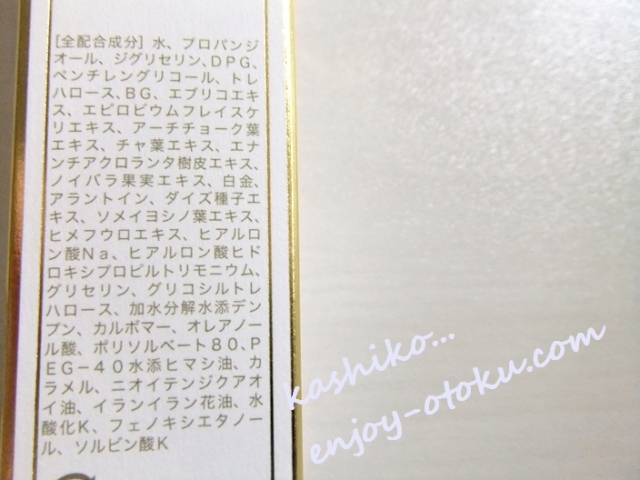 [全配合成分] 水、プロパンジ
オール、ジグリセリン、DPG、
ペンチレングリコール、トレ
ハロース、BG、エブリコエキ
ス、エピロビウムフレイスケ
リエキス、アーチチョーク葉
エキス、チャ葉エキス、エナ
ンチアクロランタ樹皮エキス、
ノイバラ果実エキス、白金、
アラントイン、ダイズ種子エ
キス、ソメイヨシノ葉エキス、
ヒメフウロエキス、ヒアルロ
ン酸Na、ヒアルロン酸ヒド
ロキシプロピルトリモニウム、
グリセリン、グリコシルトレ
ハロース、加水分解水添デン
プン、カルボマー、オレアノー
ル酸、ポリソルベート80、P
EG-40水添ヒマシ油、カ
ラメル、ニオイテンジクアオ
イ油、イランイラン花油、水
酸化K、フェノキシエタノー
ル、ソルビン酸K
kashiko...
enjoy-otoku.com